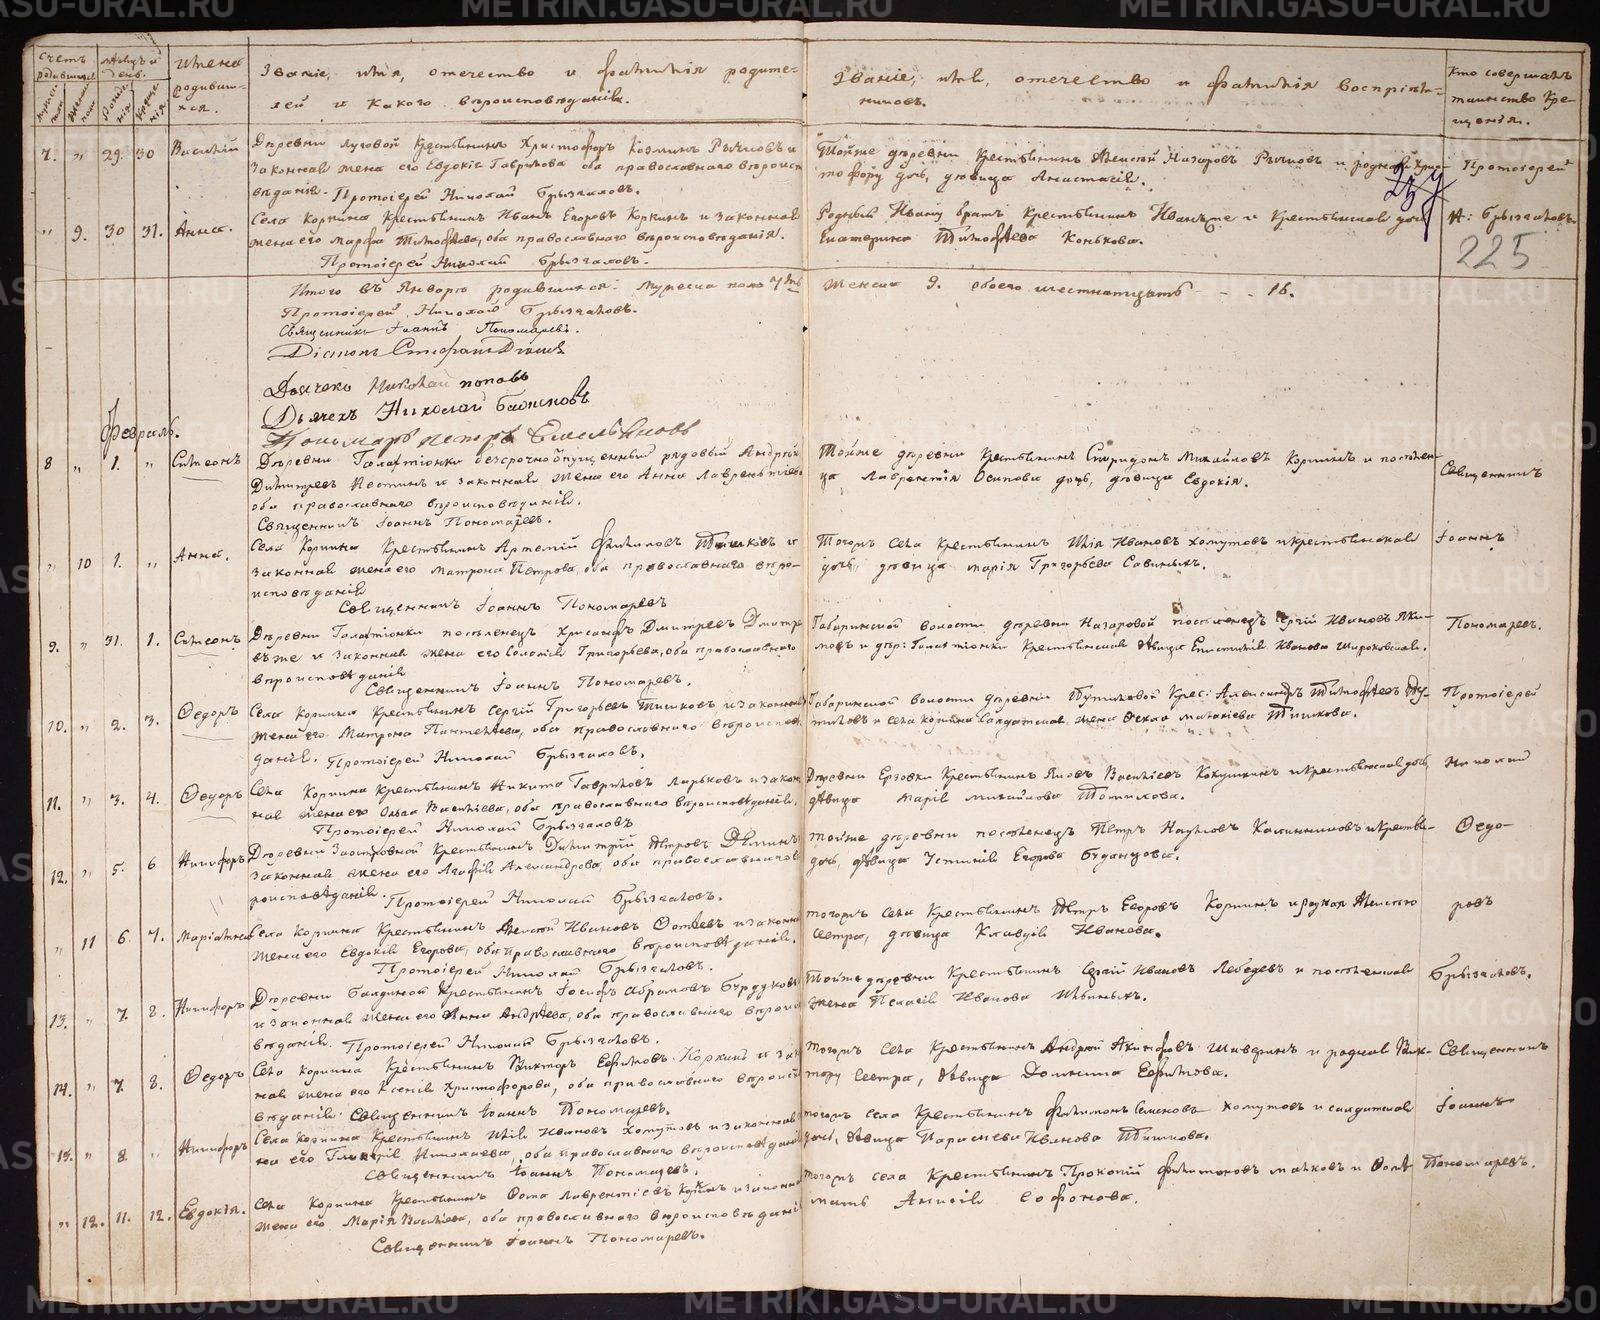 METRIKI.GASU-URAL.RU
Счетъ родившихся
Мѣсяцъ и день.
Имена родивших-
ся.
Званіе, имя, отечество и фамилія родите-
лей и какого вѣроисповѣданія.
Званіе, имя, отечество и фамилія воспріем-
никовъ.
Кто совершалъ
таинство кре-
щенія.
7. " 29. 30 Василій
Деревни Луговой Крестьянинъ Христофоръ Козминъ Рычковъ и
законная жена его Евдокія Гаврилова оба православнаго вѣроиспо
вѣданія. Протоіерей Николай Брызгаловъ.
Тойже деревни Крестьянинъ Алексѣй Назаровъ Рычковъ и родная Хрис-
тофору дочь, дѣвица Анастасія.
Протоіерей
" 9. 30 31. Анна.
Села Коркина Крестьянинъ Иванъ Егоровъ Коркинъ и законная
жена его Марфа Тимофѣева, оба православнаго вѣроисповѣданія.
Протоіерей Николай Брызгаловъ.
Родный Ивану братъ Крестьянинъ Иванъ же и крестьянская дочь
Екатерина Тимофѣева Конькова.
Н: Брызгаловъ.
225
Итого въ Январѣ родившихся: Мужеска пола 7мь
женска 9. обоего шестнатцать - - 16.
Протоіерей Николай Брызгаловъ.
Священникъ Іоаннъ Пономаревъ.
Діаконъ Стефанъ
Дьячекъ Николай Поповъ
Дьячекъ Николай
Пономарь Петръ
Февраль.
8 " 1. " Симеонъ
Деревни Галактіонки безсрочноотпущенный рядовый Андрей
Димитріевъ и законная жена его Анна Лаврентіева
оба православнаго вѣроисповѣданія.
Священникъ Іоаннъ Пономаревъ.
Тойже деревни Крестьянинъ Спиридонъ Михайловъ Коркинъ и поселен-
ца Лаврентія Осипова дочь, дѣвица Евдокія.
Священникъ
" 10 1. " Анна.
Села Коркина Крестьянинъ Артемій Филиповъ Тишковъ и
законная жена его Матрона Петрова, оба православнаго вѣро-
исповѣданія
Священникъ Іоаннъ Пономаревъ
Тогожъ села Крестьянинъ Илія Ивановъ Хомутовъ и крестьянская
дочь, дѣвица Марія Григорьева Савиныхъ.
Іоаннъ
9. " 31. 1. Симеонъ
Деревни Галактіонки поселенецъ Хрисанфъ Дмитревъ Дмитре
въ же и законная жена его Соломія Григорьева, оба православнаго
вѣроисповѣданія
Священникъ Іоаннъ Пономаревъ.
Габаринской волости деревни Назаровой поселенецъ Сергій Ивановъ Яки-
мовъ и дер: Галактіонки Крестьянская дѣвица Епистимія Иванова Широковская.
Пономаревъ.
10. " 2. 3. Ѳедоръ
Села Коркина Крестьянинъ Сергій Григорьевъ Тишковъ и законная
жена его Матрона Пантелѣева, оба православнаго вѣроисповѣ
данія. Протоіерей Николай Брызгаловъ.
Габаринской волости деревни Путиловой Крес: Александръ Тимофѣевъ Пу-
тиловъ и села Коркина солдатская жена Ѳекла Малахіева Тишкова.
Протоіерей
11. " 3. 4. Ѳедоръ
Села Коркина Крестьянинъ Никита Гавриловъ Ларьковъ и закон
ная жена его Ольга Васильева, оба православнаго вѣроисповѣданія.
Протоіерей Николай Брызгаловъ
Деревни Ерзовки Крестьянинъ Яковъ Васильевъ Кокушкинъ и крестьянская дочь,
дѣвица Марія Михайлова Томилова.
Николай
12. " 5. 6 Никифоръ
Деревни Заостровной Крестьянинъ Димитрій Петровъ Деминъ
законная жена его Агафія Александрова, оба православнаго вѣ
роисповѣданія. Протоіерей Николай Брызгаловъ.
Тойже деревни поселенецъ Петръ Наумовъ Калинниковъ и крестьян-
дочь, дѣвица Устинія Егорова Буданцова.
Ѳедо-
" 11 6. 7. Маріамна
Села Коркина Крестьянинъ Алексѣй Ивановъ Фотѣевъ и законная
жена его Евдокія Егорова, оба православнаго вѣроисповѣданія.
Протоіерей Николай Брызгаловъ.
Тогожъ села Крестьянинъ Петръ Егоровъ Коркинъ и родная Алексѣю
сестра, дѣвица Клавдія Иванова.
ровъ
13. " 7. 8. Никифоръ
Деревни Балдиной Крестьянинъ Іосифъ Абрамовъ Бурдуковъ
и законная жена его Анна Андрѣева, оба православнаго вѣроиспо
вѣданія. Протоіерей Николай Брызгаловъ.
Тойже деревни Крестьянинъ Сергій Ивановъ Лебедевъ и поселенская
жена Пелагія Иванова Шѣбиныхъ.
Брызгаловъ.
14. " 7. 8. Ѳедоръ
Села Коркина Крестьянинъ Викторъ Ефимовъ Коркинъ и закон
ная жена его Ксенія Христофорова, оба православнаго вѣроиспо
вѣданія. Священникъ Іоаннъ Пономаревъ.
Тогожъ села Крестьянинъ Андрей Акинфовъ Шавринъ и родная Вик-
тору сестра, дѣвица Домника Ефимова.
Священникъ
15. " 8. " Никифоръ
Села Коркина Крестьянинъ Илія Ивановъ Хомутовъ и законная же
на его Гликерія Николаева, оба православнаго вѣроисповѣданія
Священникъ Іоаннъ Пономаревъ.
Тогожъ села Крестьянинъ Филимонъ Семеновъ Хомутовъ и солдатская
дочь, дѣвица Параскева Иванова Тишкова.
Іоаннъ
" 12. 11. 12. Евдокія.
Села Коркина Крестьянинъ Ѳома Лаврентіевъ и законная
жена его Марія Васильева, оба православнаго вѣроисповѣданія
Священникъ Іоаннъ Пономаревъ.
Тогожъ села Крестьянинъ Прокопій Филимоновъ Малковъ и Ѳомѣ
мать Анисія Софонова.
Пономаревъ.